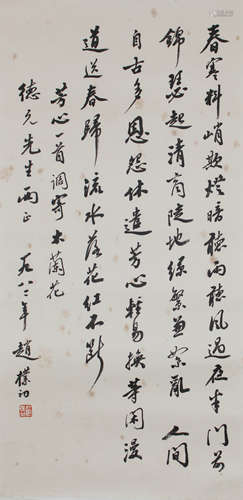 春寒料峭欺燈暗聽雨聽風過夜半門前
錦瑟起清商陡地絲繁兼絮亂 人間
自古多恩怨休遣芳心輕易換等閒漫
道送春歸流水落花紅不斷
芳心一首調寄木蘭花
德久先生兩正 一九八二年 趙樸初